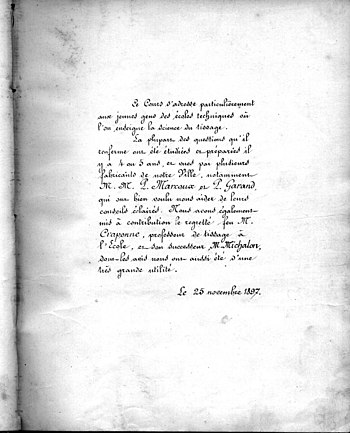 Ce Cours s'adresse particulièrement
aux jeunes gens des écoles techniques où
l'on enseigne la science du tissage.
La plupart des questions qu'il
renferme ont été étudiées et préparées il
y a 4 ou 5 ans, et vues par plusieurs
fabricants de notre Ville, notamment
M. M. P. Marcoux et P. Garand,
qui ont bien voulu nous aider de leurs
conseils éclairés. Nous avons également
mis à contribution le regretté feu M.
Craponne, professeur de tissage à
l'École, et son successeur M. Michalon,
dont les avis nous ont aussi été d'une
très grande utilité.
Le 25 novembre 1897.